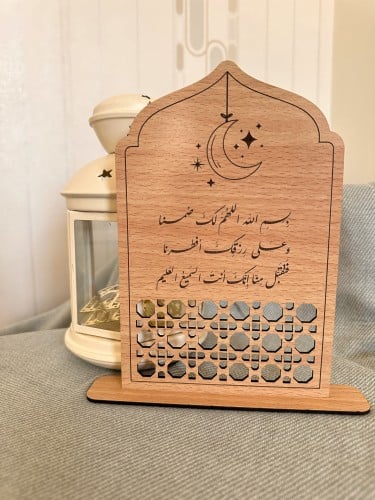 بسم الله اللهُمَّ لَكَ صُمنا
وَعَلى رِزقِكَ أَفطَرنا
فَتَقَبَّل مِنّا إِنَّكَ أَنتَ السَّميعُ العَليم